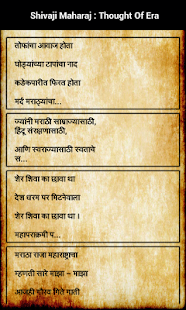 Shivaji Maharaj : Thought Of Era
तोफांचा आवाज होता
घोड्यांच्या टापांचा नाद
कडेकपारीत फिरत होता
मर्द मराठ्यांचा...
ज्यांनी मराठी साम्राज्यासाठी,
हिंदू संरक्षणासाठी,
आणि स्वराज्यासाठी स्वताचे
स...
शेर शिवा का छावा था
देश धरम पर मिटनेवाला
शेर शिवा का छावा था ।
महापराक्रमी प...
मराठा राजा महाराष्ट्राचा
म्हणती सारे माझा - माझा
आजही गौरव गिते गाती